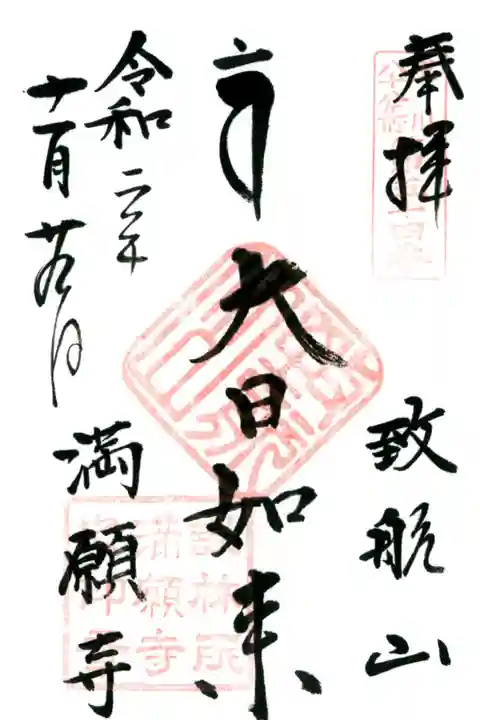 奉拝
致航山
大日如来
令和二年
十一月廿九日
満願寺